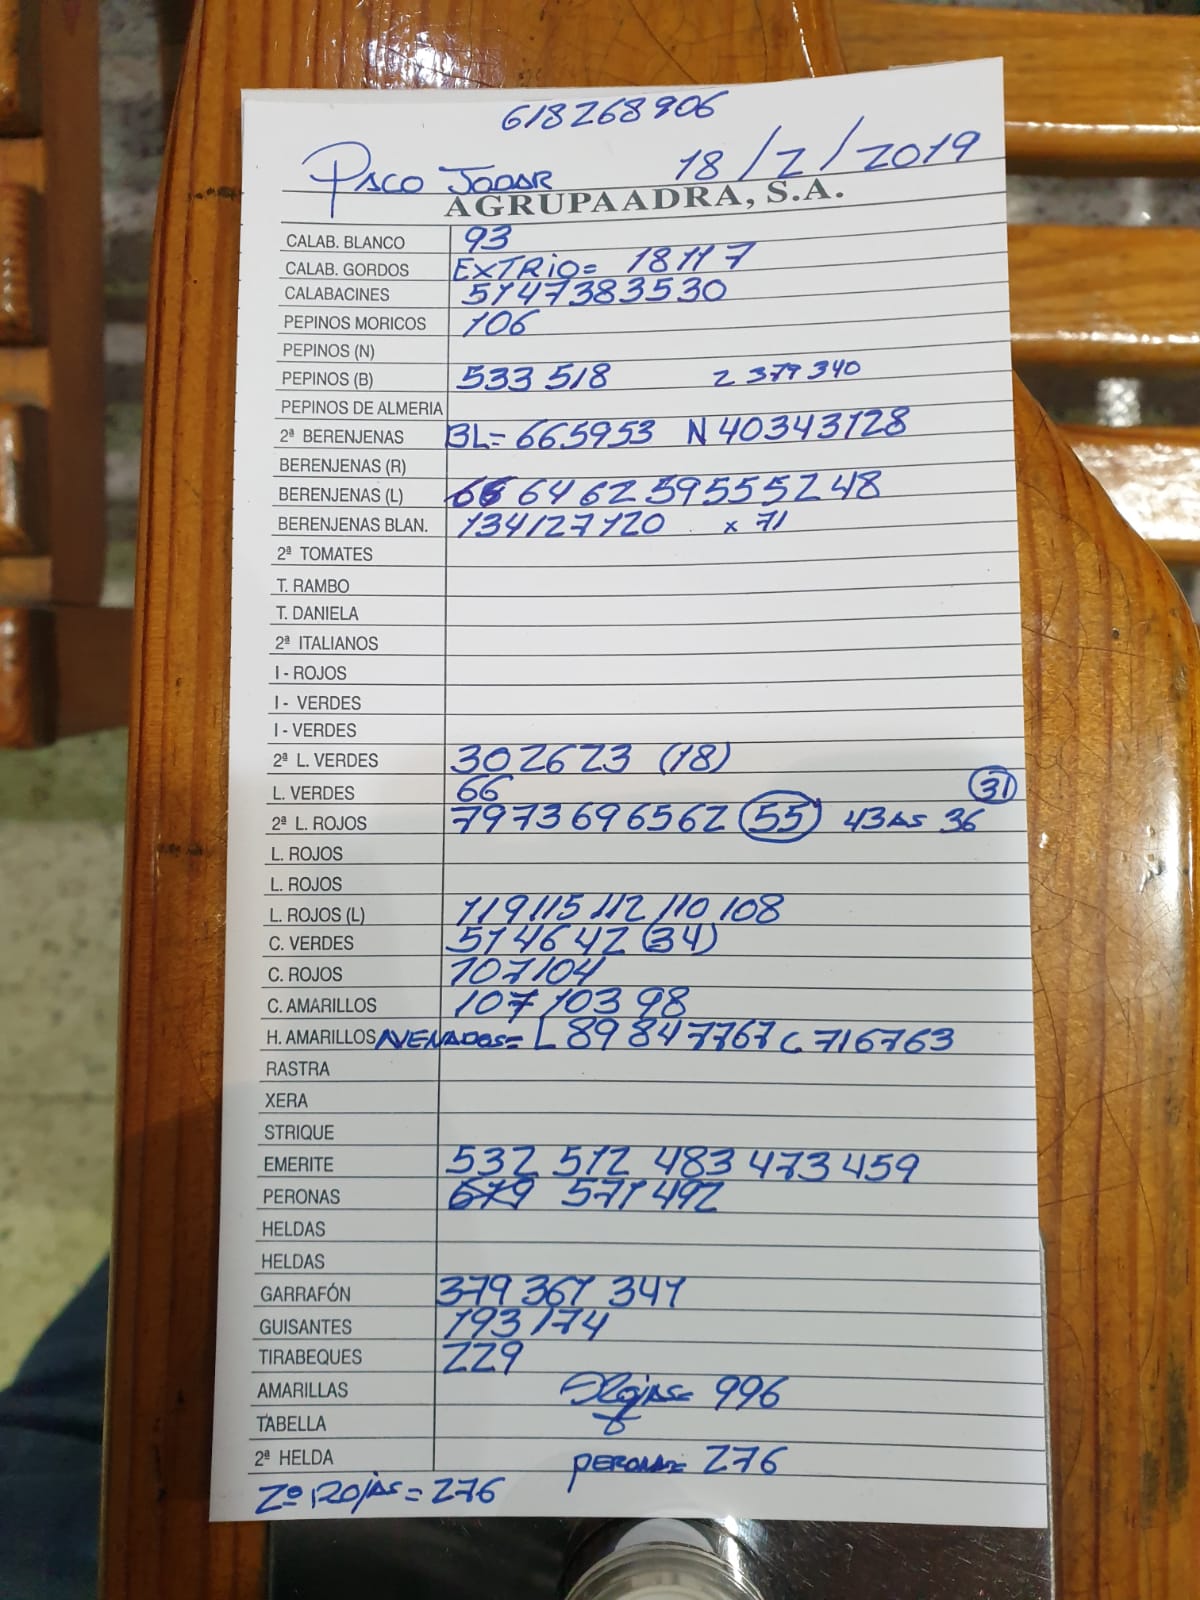 618268906
PACO JODAR 18/2/2019
AGRUPAADRA, S.A.
CALAB. BLANCO 93
CALAB. GORDOS EXTRIO= 18117
CALABACINES 5147383530
PEPINOS MORICOS 106
PEPINOS (N)
PEPINOS (B) 533 518 2 379 340
PEPINOS DE ALMERIA
2ª BERENJENAS BL= 665953 N 40343128
BERENJENAS (R)
BERENJENAS (L) 66 64 62 59 55 52 48
BERENJENAS BLAN. 134127120 x 71
2ª TOMATES
T. RAMBO
T. DANIELA
2ª ITALIANOS
I - ROJOS
I - VERDES
I - VERDES
2ª L. VERDES 302623 (18)
L. VERDES 66 31
2ª L. ROJOS 7973696562 55 43 AS 36
L. ROJOS
L. ROJOS
L. ROJOS (L) 119 115 112 110 108
C. VERDES 514642 (34)
C. ROJOS 107104
C. AMARILLOS 107 103 98
H. AMARILLOS AVENADOS= L 89 847767 C 716763
RASTRA
XERA
STRIQUE
EMERITE 532 512 483 473 459
PERONAS 679 571 492
HELDAS
HELDAS
GARRAFÓN 379 361 341
GUISANTES 193 174
TIRABEQUES 229
AMARILLAS Rojas= 996
TABELLA
2ª HELDA PERONA= 276
2ª ROJAS = 276